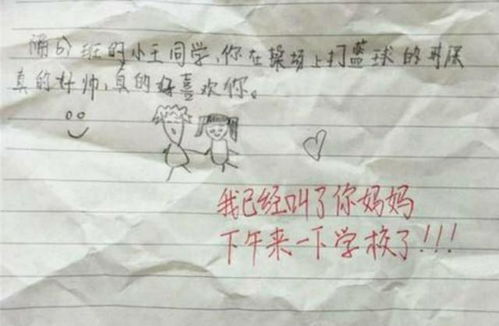 班的小王同学,你在操场上打蓝球的
真的好帅,真的好喜欢你。
我已经叫了你妈妈
下午来一下学校了!!!